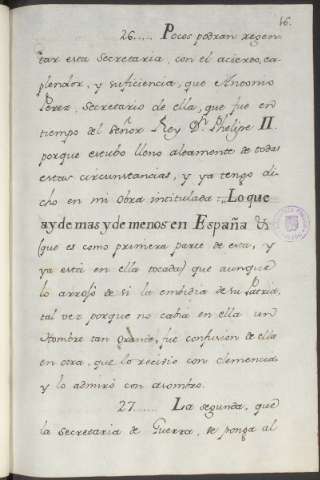 16.
26..... Pocos podran regen-
tar esta Secretaria, con el acierto, es-
plendor, y suficiencia, que Antonio
Perez, Secretario de ella, que fue en
tiempo del Señor Rey Dn. Phelipe II.
porque estubo lleno altamente de todas
estas circunstancias, y ya tengo di-
cho en mi obra intitulada: Lo que
ay de mas y de menos en España &
(que es como primera parte de esta, y
ya está en ella tocada) que aunque
lo arrojó de si la embidia de su Patria,
tal vez porque no cabia en ella un
Hombre tan grande, fue confusion de ella
en otra, que lo recivió con clemencia
y lo admiró con asombro.
27...... La segunda, que
la Secretaria de Guerra, se ponga al